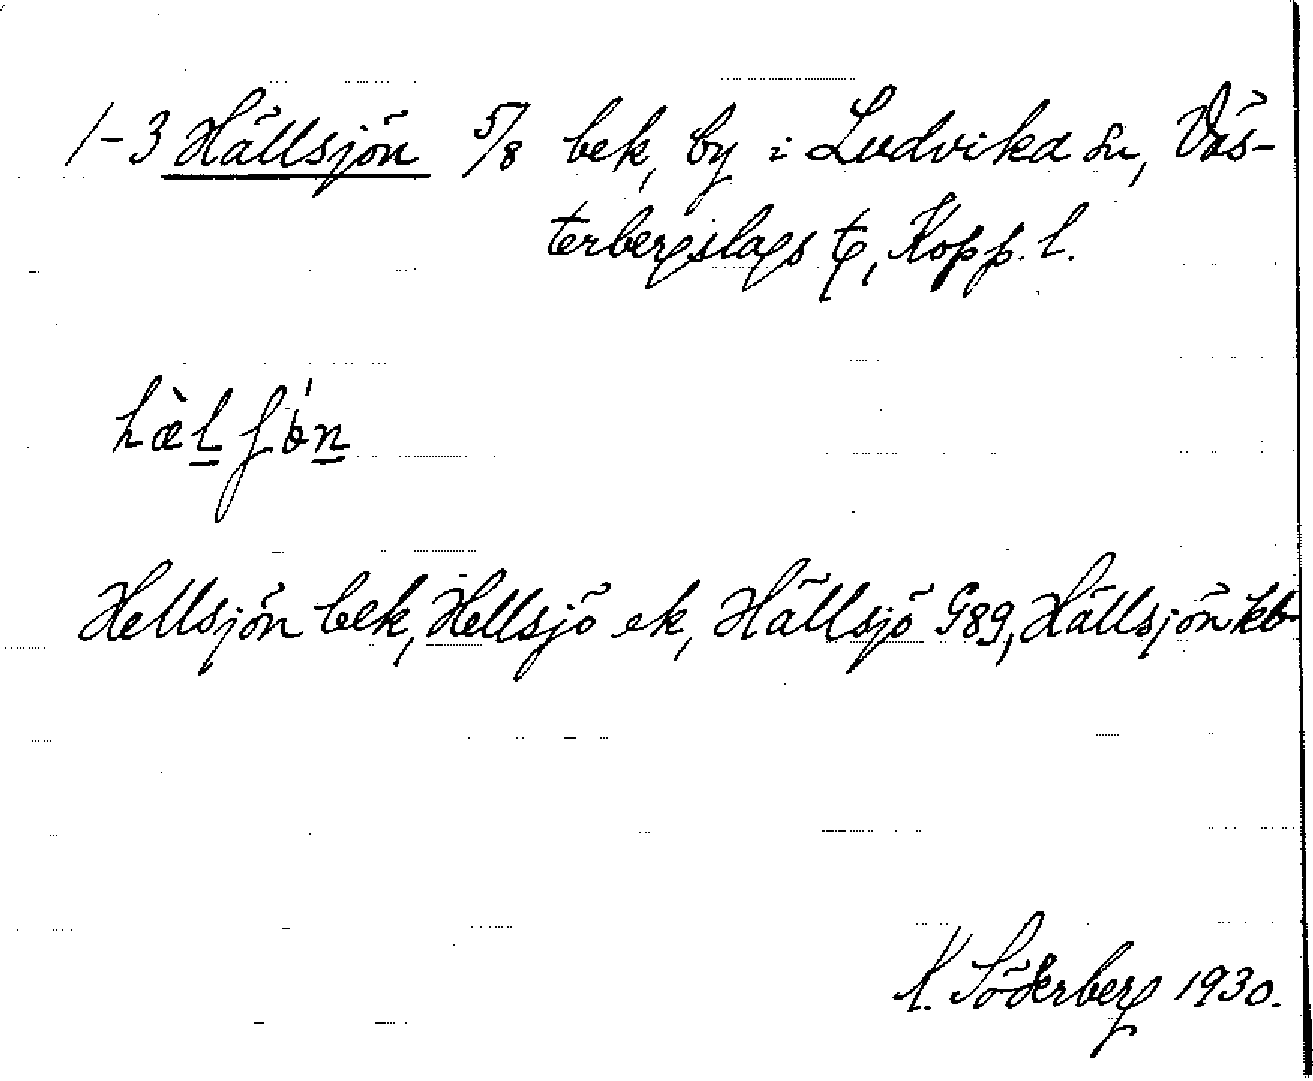 1-3 Hällsjön 5/8 bek, by i Ludvika sn, Väs-
terbergslags tg, Kopp. l.
hæ̀lʃǿn
Hellsjön bek, Hellsjö ek, Hällsjö G89, Hällsjön kb
K. Söderberg 1930.